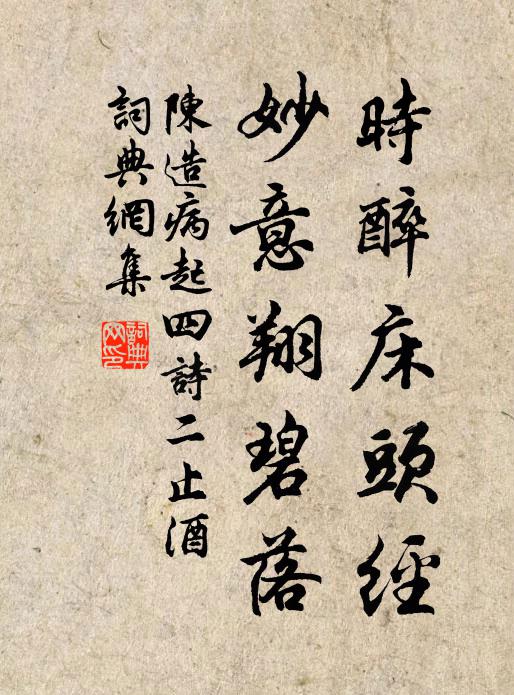 時醉床頭經
妙意翔碧落
陳造病起四詩二止酒
詞典網集
詞典網印